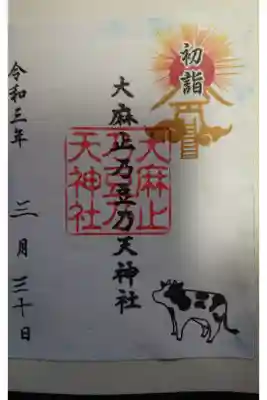 初詣
大麻止乃豆乃天神社
大麻止
乃豆乃
天神社
令和三年 三月 三十日